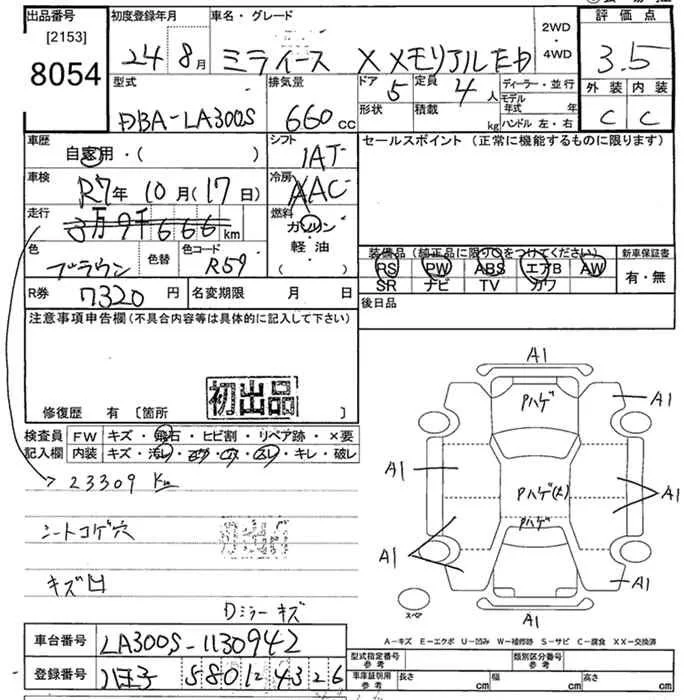 出品番号
[2153]
8054
初度登録年月
24年8月
車名・グレード
ミライース X XメモリアルエD
2WD
・
4WD
評価点
3.5
外装 内装
C C
型式
DBA-LA300S
排気量
660cc
ドア
5
定員
4人
形状
積載
kg
ディーラー・並行
モデル年式 年
ハンドル 左・右
車歴
自家用・( )
シフト
IAT
セールスポイント (正常に機能するものに限ります)
車検
R7年10月(17日)
冷房
AAC
走行
3万9千666km
燃料
ガソリン
軽・油
・( )
色
ブラウン
色替
色コード
R59
装備品(純正品に限り○をつけてください)
RS PW ABS エアB AW
SR ナビ TV カワ
新車保証書
有・無
R券
7320円
名変期限 月 日
後日品
注意事項申告欄(不具合内容等は具体的に記入して下さい)
初出品
修復歴 有 [箇所 ]
検査員記入欄
FW キズ・飛石・ヒビ割・リペア跡・×要
内装 キズ・汚レ・・・スレ・キレ・破レ
23309 Km
シートコゲ穴
初出品
キズ凹
Dミラーキズ
A1
Pハゲ
A1
A1
Pハゲ(大)
A1
Pハゲ
A1
A1
A1
スペア
A-キズ E-エクボ U-凹み W-補修跡 S-サビ C-腐食 XX-交換済
車台番号
LA300S-1130942
登録番号
八王子 580 1 4326
型式指定番号
参考
類別区分番号
参考
車庫証明用
参考
長さ cm
幅 cm
高さ cm